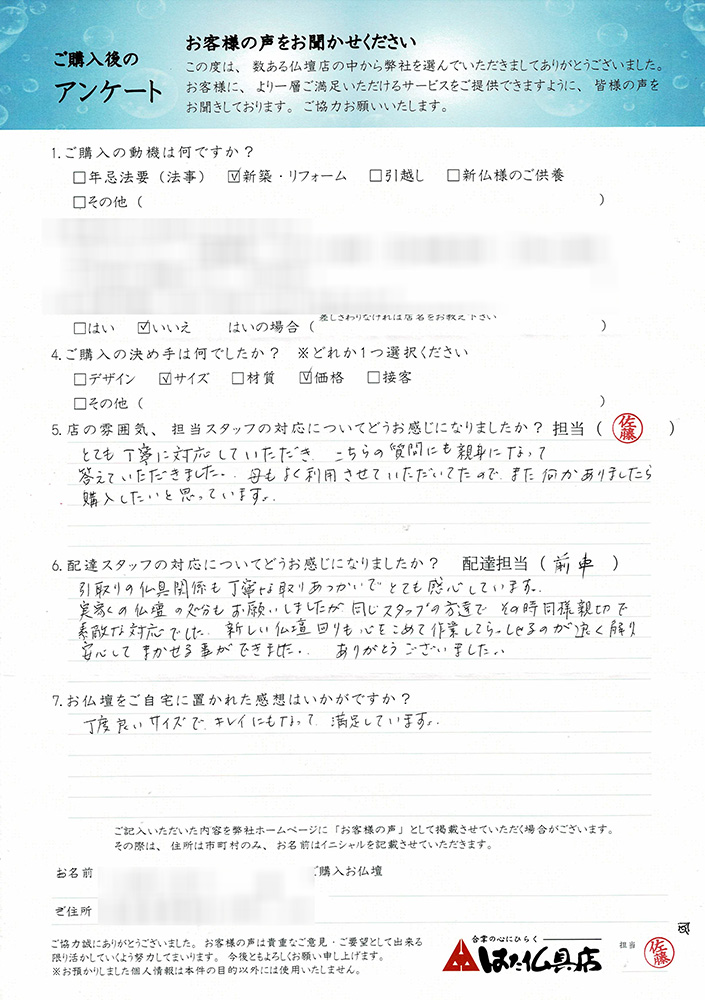 ご購入後の
アンケート
お客様の声をお聞かせください
この度は、数ある仏壇店の中から弊社を選んでいただきましてありがとうございました。
お客様に、より一層ご満足いただけるサービスをご提供できますように、皆様の声を
お聞きしております。ご協力お願いいたします。
1.ご購入の動機は何ですか？
□年忌法要（法事） ☑新築・リフォーム □引越し □新仏様のご供養
□その他（ ）
差しさわりなければ店名をお教え下さい
□はい ☑いいえ はいの場合（ ）
4.ご購入の決め手は何でしたか？ ※どれか1つ選択ください
□デザイン ☑サイズ □材質 ☑価格 □接客
□その他（ ）
5.店の雰囲気、担当スタッフの対応についてどうお感じになりましたか？担当（ 佐藤 ）
とても丁寧に対応していただき、こちらの質問にも親身になって
答えていただきました。母もよく利用させていただいてたので、また何かありましたら
購入したいと思っています。
6.配達スタッフの対応についてどうお感じになりましたか？ 配達担当（ 前車 ）
引取りの仏具関係も丁寧な取りあつかいでとても感心しています。
実家の仏壇の処分もお願いしましたが同じスタッフの方達でその時同様親切で
素敵な対応でした。新しい仏壇回りも心をこめて作業してらっしゃるのが良く解り
安心してまかせる事ができました。ありがとうございました。
7.お仏壇をご自宅に置かれた感想はいかがですか？
丁度良いサイズで、キレイにもなって、満足しています。
ご記入いただいた内容を弊社ホームページに「お客様の声」として掲載させていただく場合がございます。
その際は、住所は市町村のみ、お名前はイニシャルを記載させていただきます。
お名前 ご購入お仏壇
ご住所
ご協力誠にありがとうございました。お客様の声は貴重なご意見・ご要望として出来る
限り活かしていくよう努力してまいります。今後ともよろしくお願い申し上げます。
※お預かりしました個人情報は本件の目的以外には使用いたしません。
合掌の心にひらく
はた仏具店
担当 佐藤